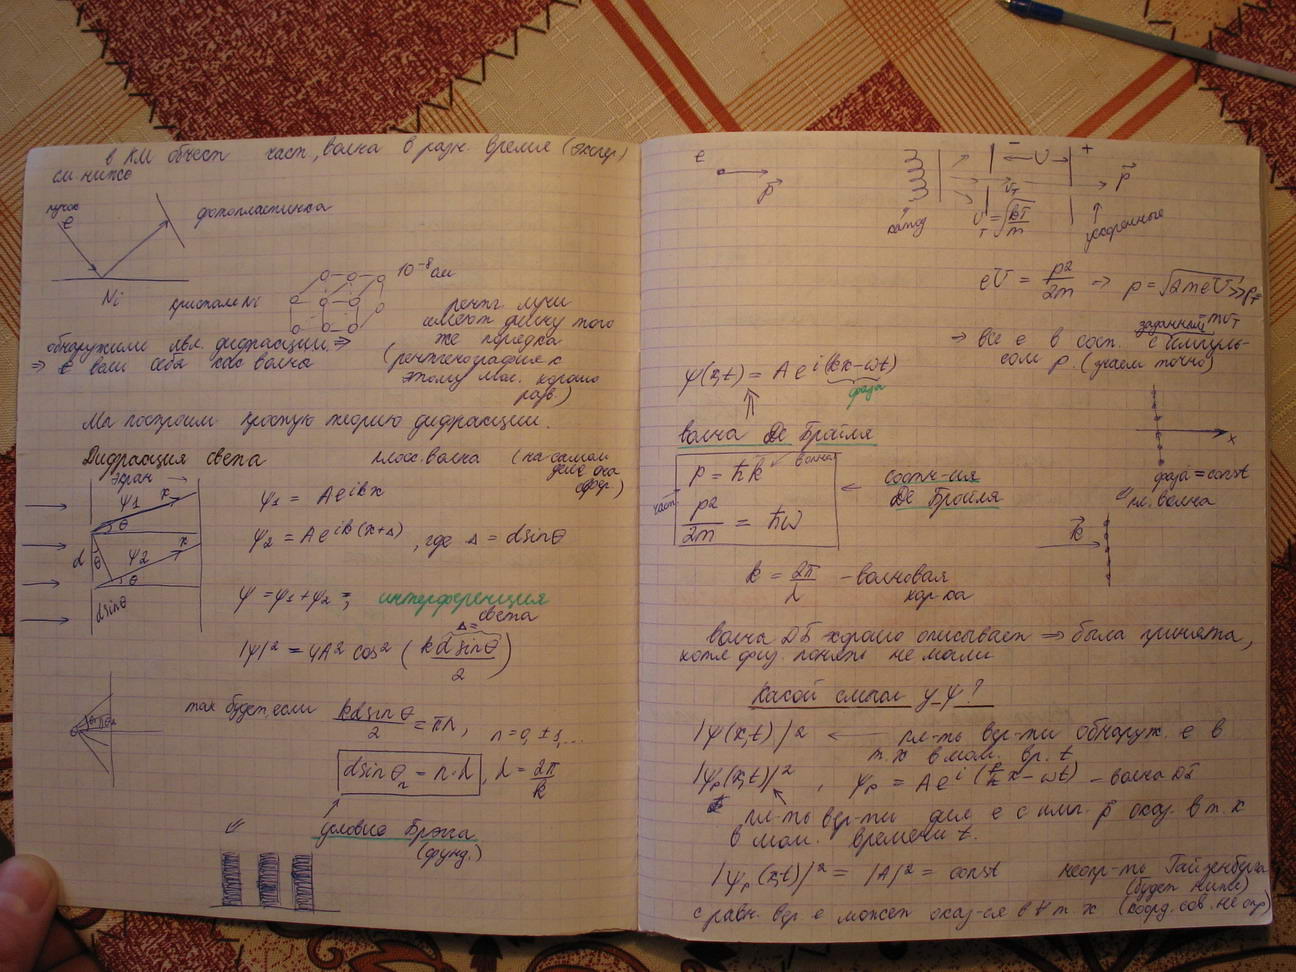 в КМ объект част, волна в разн. время (экспер)
см. ниже
пучок
e
фотопластинка
Ni
кристалл Ni
10⁻⁸ см
рентг. лучи
имеют длину того
же порядка
(рентгенография к
этому мом. хорошо
разв.)
обнаружили явл. дифракции. ⇒
⇒ e вели себя как волна
Мы построим простую теорию дифракции.
Дифракция света
плоск. волна (на самом
деле она
сфер.)
Экран
ψ1
x
θ
d
θ
ψ2
x
θ
dsinθ
ψ₁ = Ae^{ikx}
ψ₂ = Ae^{ik(x+Δ)}, где Δ = dsinθ
ψ = ψ₁ + ψ₂ =, интерференция
света
Δ=
|ψ|² = 4A² cos² (kdsinθ/2)
так будет, если kdsinθ/2 = πn, n = 0, ±1,...
dsinθₙ = n·λ, λ = 2π/k
условие Брэгга
(фунд.)
e
p⃗
− U +
катод
v_T
v_T = √(kT/m)
p⃗
ускоренные
eU = p²/2m → p = √(2meU) >> p_T
= mv_T
заданным
→ все e в сост. с импуль-
сом p. (знаем точно)
ψ(x,t) = Ae^{i(kx−ωt)}
фаза
волна Де Бройля
p = ħk
волна
част
p²/2m = ħω
← соотн-ия
Де Бройля
x
фаза = const
пл. волна
k⃗
k = 2π/λ - волновая
хар-ка
волна ДБ хорошо описывает ⇒ была принята,
хотя физ. понять не могли
Какой смысл у ψ?
|ψ(x,t)|² ← пл-ть вер-ти обнаруж. e в
т. x в мом. вр. t
|ψp(x,t)|², ψp = Ae^{i(p/ħ x−ωt)} - волна ДБ
пл-ть вер-ти для e с имп. p⃗ оказ. в т. x
в мом. времени t.
|ψp(x,t)|² = |A|² = const
неопр-ть Гайзенберга
(будет ниже)
с равн. вер e может оказ-ся в ∀ т. x (коорд. сов. не опр)